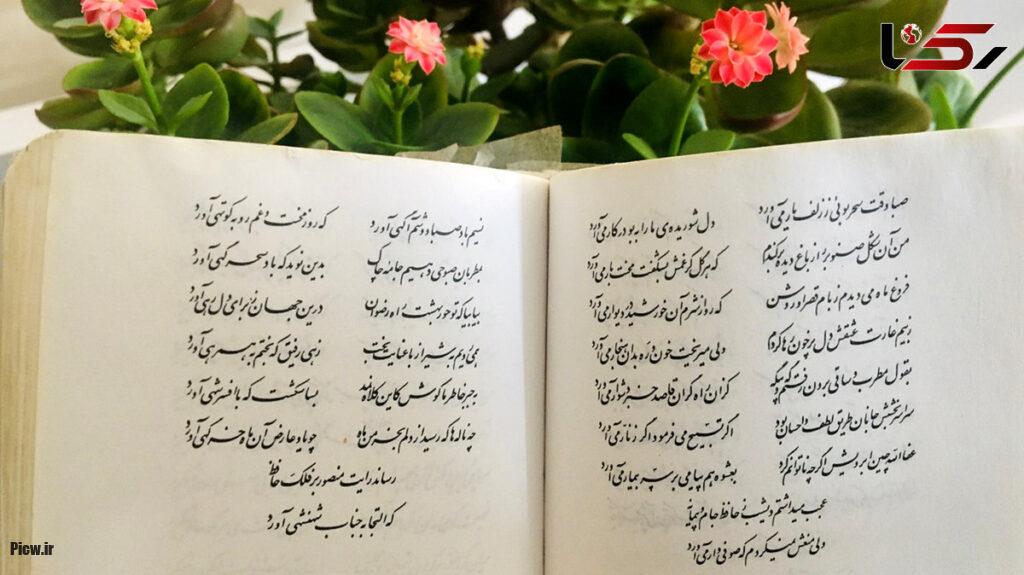 رکنا
صبا وقت سحر بوئی ز زلف یار می‌آورد دل شوریده‌ی ما را به بو در کار می‌آورد
من آن شکل صنوبر را ز باغ دیده برکندم که هر گل کز غمش بشکفت محنت بار می‌آورد
فروغ ماه می‌دیدم ز بام قصر او روشن که رو از شرم آن خورشید در دیوار می‌آورد
ز بیم غارت عشقش دل پرخون رها کردم ولی میریخت خون و ره بدان هنجار می‌آورد
بقول مطرب و ساقی برون رفتم گه و بیگه کزان راه گران قاصد خبر دشوار می‌آورد
سراسر بخشش جانان طریق لطف و احسان بود اگر تسبیح می‌فرمود اگر زنار می‌آورد
عفاالله چین ابرویش اگرچه ناتوانم کرد بعشوه هم پیامی بر سر بیمار می‌آورد
عجب میداشتم دیشب ز حافظ جام و پیمانه
ولی منعش نمیکردم که صوفی‌وار می‌آورد
نسیم باد صبا دوشم آگهی آورد که روز محنت و غم رو به کوتهی آورد
بمطربان صبوحی دهیم جامه چاک بدین نوید که باد سحرگهی آورد
بیا بیا که تو حور بهشت را رضوان درین جهان ز برای دل رهی آورد
همی رویم بشیراز با عنایت بخت زهی رفیق که بختم به همرهی آورد
بجبر خاطر ما کوش کاین کلاه نمد بسا شکست که با افسر شهی آورد
چه ناله‌ها که رسید از دلم بخرمن ماه چو یاد عارض آن ماه خرگهی آورد
رساند رایت منصور بر فلک حافظ
که التجا به جناب شهنشهی آورد
Picw.ir